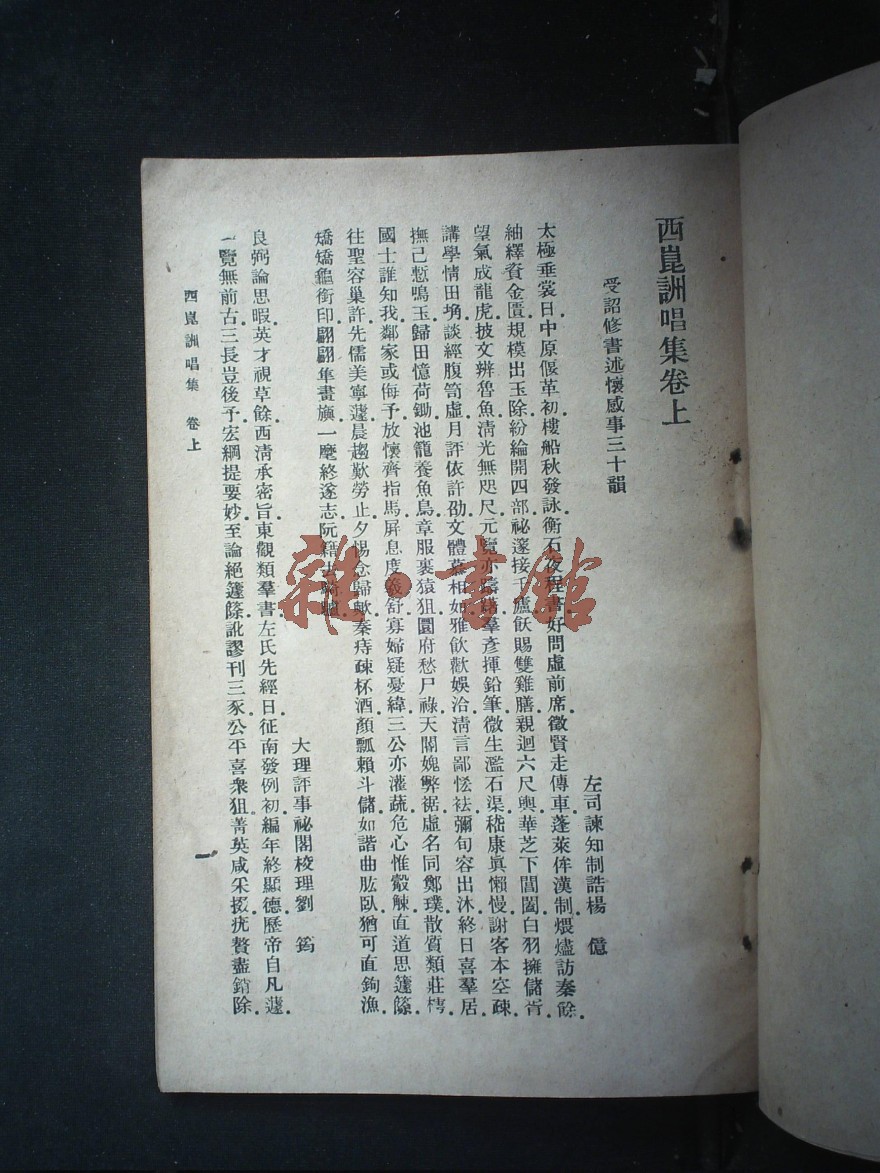 西崑詶唱集卷上
受詔修書述懷感事三十韻
左司諫知制誥楊億
太極垂裳日中原偃革初樓船秋發詠衡石夜程書好問虛前席徵賢走傳車蓬萊侔漢制煨燼訪秦餘
紬繹資金匱規模出玉除紛綸開四部祕邃接千廬飫賜雙雞膳親迴六尺輿華芝下閶闔白羽擁儲胥
望氣成龍虎披文辨魯魚清光無咫尺元覽亦躊躇羣彥揮鉛筆微生濫石渠嵇康真懶慢謝客本空疎
講學情田埆談經腹笥虛月評依許劭文體慕相如雅飲歡娛洽清言鄙悋袪彌旬容出沐終日喜羣居
撫己慙鳴玉歸田憶荷鋤池籠養魚鳥章服裹猿狙圜府愁尸祿天閽媿弊裾虛名同鄭璞散質類莊樗
國士誰知我鄰家或侮予放懷齊指馬屏息度羲舒寡婦疑憂緯三公亦灌蔬危心惟觳觫直道思籧篨
往聖容巢許先儒美寧蘧晨趨歎勞止夕惕念歸歟秦痔疎杯酒顏瓢賴斗儲如諧曲肱臥猶可直鉤漁
矯矯龜銜印翩翩隼畫旟一麾終遂志阮籍去騎驢
大理評事祕閣校理劉筠
良弼論思暇英才視草餘西清承密旨東觀類羣書左氏先經日征南發例初編年終顯德歷帝自凡蘧
一覽無前古三長豈後予宏綱提要妙至論絕籧篨訛謬刊三豕公平喜衆狙菁英咸采掇疣贅盡銷除
西崑詶唱集 卷上
一
雜·書館